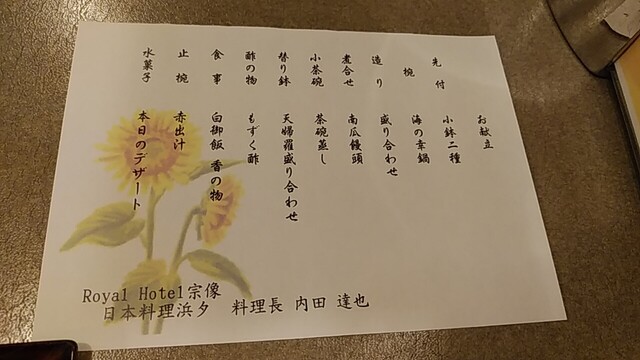 お献立
先付 小鉢二種
椀 海の幸鍋
造り 盛り合わせ
煮合せ 南瓜饅頭
小茶碗 茶碗蒸し
替り鉢 天婦羅盛り合わせ
酢の物 もずく酢
食事 白御飯 香の物
止椀 赤出汁
水菓子 本日のデザート
Royal Hotel宗像
日本料理浜夕 料理長 内田 達也